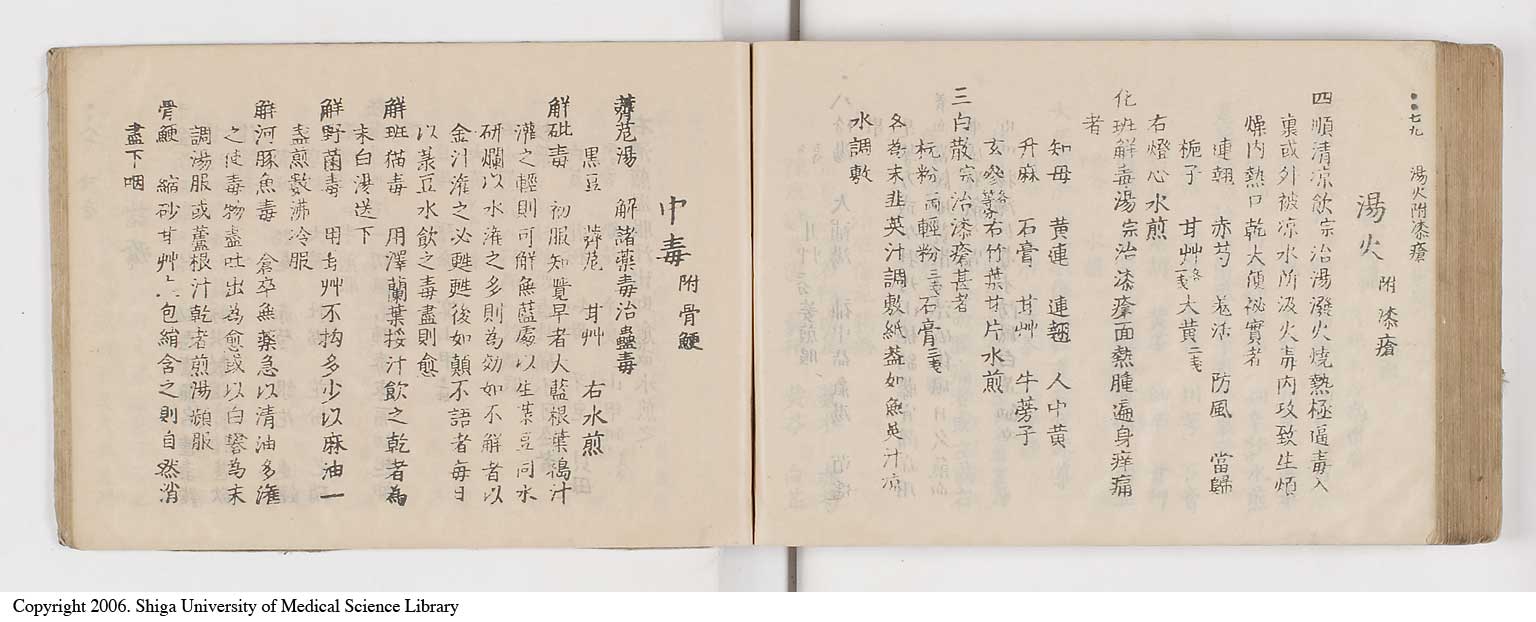 七九 湯火附漆瘡
湯火 附漆瘡
四順清凉飲宗治湯潑火燒熱極逼毒入
裏或外被凉水所汲火毒内攻致生煩
燥内熱口乾大便祕實者
連翹 赤芍 羌活 防風 當歸
梔子 甘艸各一戔大黄二戔
右燈心水煎
化班解毒湯宗治漆瘡面熱腫遍身痒痛
者
知母 黄連 連翹 人中黄
升麻 石膏 甘艸 牛蒡子
玄參各等分右竹葉廿片水煎
三白散宗治漆瘡甚者
杭粉一兩輕粉三戔石膏三戔
各為末韭菜汁調敷紙盖如無菜汁凉
水調敷
中毒 附骨鯁
薺苨湯 解諸藥毒治蠱毒
黒豆 薺苨 甘艸 右水煎
解砒毒 初服知覺早者大藍根葉搗汁
灌之輕則可解無藍處以生菉豆同水
研爛以水灌之多則為効如不解者以
金汁灌之必甦甦後如顛不語者毎日
以菉豆水飲之毒盡則愈
解班猫毒 用澤蘭葉挼汁飲之乾者為
末白湯送下
解野菌毒 用甘艸不拘多少以麻油一
盞煎數沸冷服
解河豚魚毒 倉卒無藥急以清油多灌
之使毒物盡吐出為愈或以白礬為末
調湯服或蘆根汁乾者煎湯頻服
骨鯁 縮砂甘艸二 包綿含之則自然消
盡下咽
Copyright 2006. Shiga University of Medical Science Library